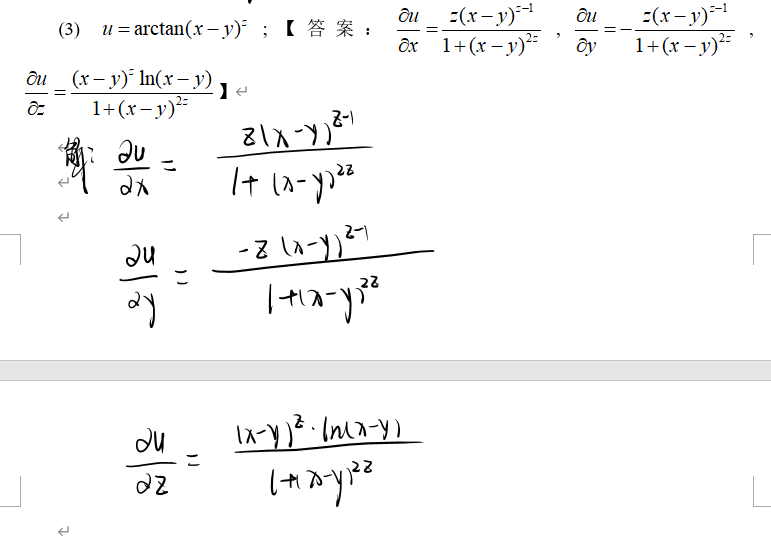 (3) u = arctan(x − y)^z ；【 答 案 ： ∂u/∂x = z(x − y)^{z−1}/(1 + (x − y)^{2z}) ， ∂u/∂y = − z(x − y)^{z−1}/(1 + (x − y)^{2z}) ，
∂u/∂z = (x − y)^z ln(x − y)/(1 + (x − y)^{2z}) 】
解: ∂u/∂x = z(x−y)^{z−1}/(1+(x−y)^{2z})
∂u/∂y = −z(x−y)^{z−1}/(1+(x−y)^{2z})
∂u/∂z = (x−y)^z·ln(x−y)/(1+(x−y)^{2z})